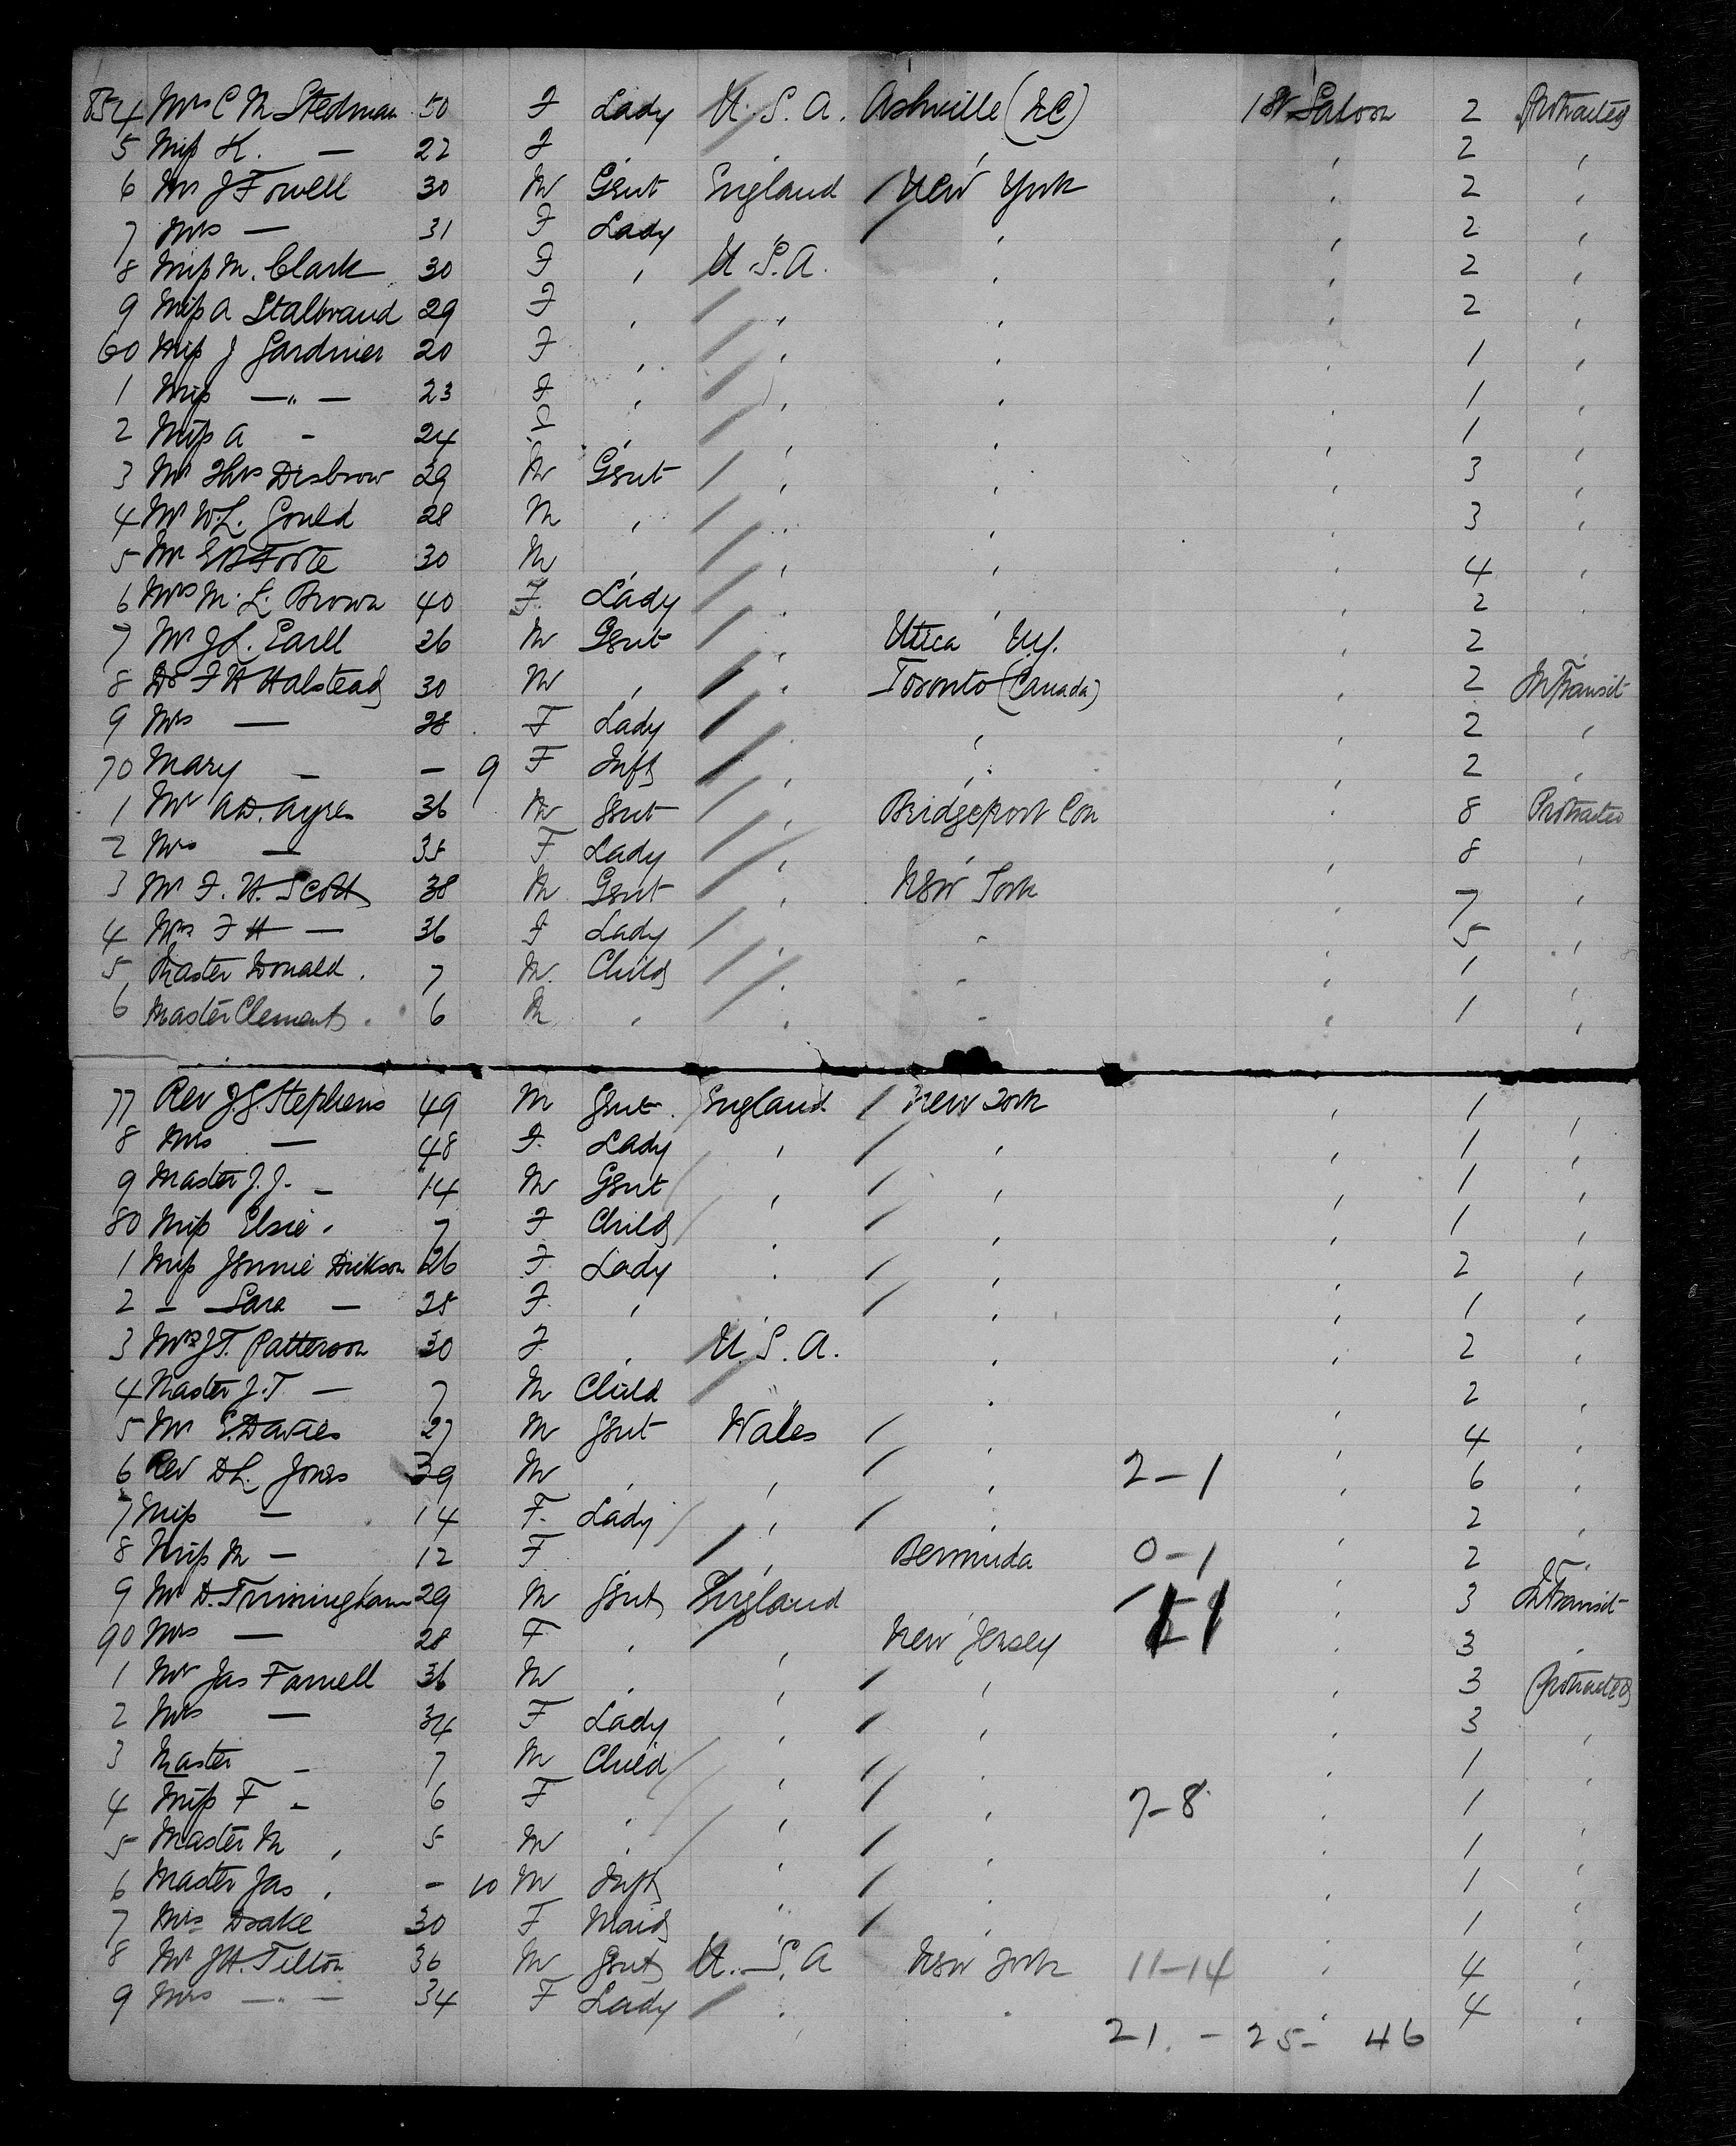 854 Mrs C M Stedman 50 F Lady U.S.A. Ashville (N.C) 1st Saloon 2 Protracted
5 Miss K. — 22 F , , , , 2 ,
6 Mr J Fowell 30 M Gent England / New York , 2 ,
7 Mrs — 31 F Lady " / , , 2 ,
8 Miss M. Clark 30 F , U.S.A. , , 2 ,
9 Miss A Stalbrand 29 F , , , , 2 ,
60 Miss J Gardner 20 F , , , , 1 ,
1 Miss — " — 23 F , , , , 1 ,
2 Miss A - 24 F , , , , 1 ,
3 Mr Thos Disbrow 29 M Gent , , , 3 ,
4 Mr W.L. Gould 28 M , , , , 3 ,
5 Mr Foote 30 M , , , , 4 ,
6 Mrs M. L. Brown 40 F. Lady , , , 2 ,
7 Mr J L. Earll 26 M Gent , Utica N.Y. , 2 ,
8 Dr F H Halstead 30 M , , Toronto (Canada) , 2 In Transit
9 Mrs — 28 F Lady , , , 2 ,
70 Mary - — 9 F Inft , , , 2 ,
1 Mr A.D. Ayres 36 M Gent , Bridgeport Con , 8 Protracted
2 Mrs — 35 F Lady , , , 8 ,
3 Mr F. H. Scott 38 M Gent , New York , 7 ,
4 Mrs F H — 36 F Lady , - , 5 ,
5 Master Donald . 7 M Child , - , 1 ,
6 Master Clement . 6 M , , - , 1 ,
77 Rev J.S. Stephens 49 M Gent. England / New York , 1 ,
8 Mrs — 48 F. Lady , / , , 1 ,
9 Master J. J. - 14 M Gent , / , , 1 ,
80 Miss Elsie . 7 F Child , / , , 1 ,
1 Miss Jennie Dickson 26 F. Lady , / , , 2 ,
2 — Sara — 25 F. , , / , , 1 ,
3 Mrs J.T. Patterson 30 F. , U.S.A. , , 2 ,
4 Master J.T — 7 M Child " , , 2 ,
5 Mr E. Davies 27 M Gent Wales / , , 4 ,
6 Rev D L. Jones 39 M , , / , 2-1 , 6 ,
7 Miss — 14 F. Lady , / , , 2 ,
8 Miss M — 12 F , Bermuda 0-1 , 2 ,
9 Mr D. Trimingham 29 M Gent England , 3 In Transit
90 Mrs — 28 F , , New Jersey , 3 ,
1 Mr Jas Farrell 36 M , , / , , 3 Protracted
2 Mrs — 34 F Lady , / , , 3 ,
3 Master - 7 M Child , / , , 1 ,
4 Miss F - 6 F , , / , 7-8 , 1 ,
5 Master M , 5 M , , / , , 1 ,
6 Master Jas , - 10 M Inft , / , , 1 ,
7 Mrs Drake 30 F Maid , / , , 1 ,
8 Mr J H. Tilton 36 M Gent U.S.A New York 11-14 , 4 ,
9 Mrs — " — 34 F Lady , , , 4 ,
21. - 25- 46